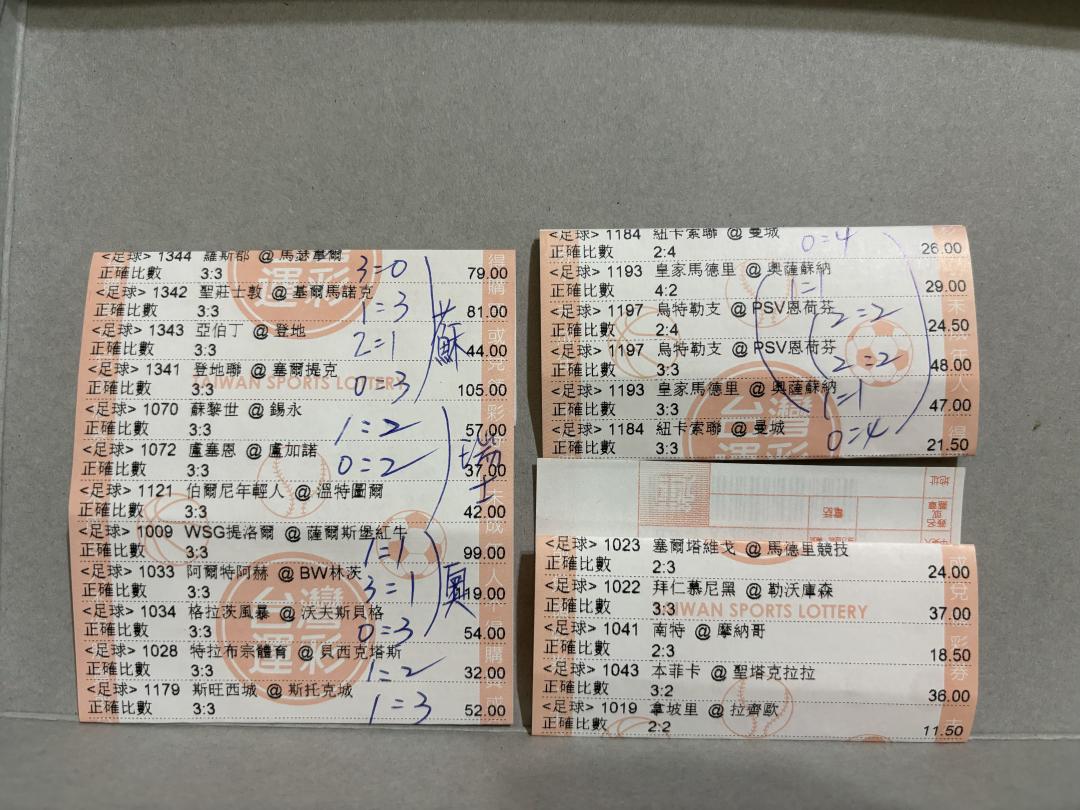 <足球> 1344 羅斯郡 @ 馬瑟韋爾
正確比數 3:3 3=0 79.00
<足球> 1342 聖莊士敦 @ 基爾馬諾克
正確比數 3:3 1=3 81.00
<足球> 1343 亞伯丁 @ 登地
正確比數 3:3 2=1 44.00
蘇
<足球> 1341 登地聯 @ 塞爾提克
正確比數 3:3 0=3 105.00
<足球> 1070 蘇黎世 @ 錫永
正確比數 3:3 1=2 57.00
<足球> 1072 盧塞恩 @ 盧加諾
正確比數 3:3 0=2 37.00
瑞士
<足球> 1121 伯爾尼年輕人 @ 溫特圖爾
正確比數 3:3 42.00
<足球> 1009 WSG提洛爾 @ 薩爾斯堡紅牛
正確比數 3:3 1=1 99.00
<足球> 1033 阿爾特阿赫 @ BW林茨
正確比數 3:3 3=1 19.00
奧
<足球> 1034 格拉茨風暴 @ 沃夫斯貝格
正確比數 3:3 0=3 54.00
<足球> 1028 特拉布宗體育 @ 貝西克塔斯
正確比數 3:3 1=2 32.00
<足球> 1179 斯旺西城 @ 斯托克城
正確比數 3:3 1=3 52.00
台灣運彩
TAIWAN SPORTS LOTTERY
<足球> 1184 紐卡索聯 @ 曼城
正確比數 2:4 0=4 26.00
<足球> 1193 皇家馬德里 @ 奧薩蘇納
正確比數 4:2 1=1 29.00
<足球> 1197 烏特勒支 @ PSV恩荷芬
正確比數 2:4 2=2 24.50
<足球> 1197 烏特勒支 @ PSV恩荷芬
正確比數 3:3 2=2 48.00
<足球> 1193 皇家馬德里 @ 奧薩蘇納
正確比數 3:3 1=1 47.00
<足球> 1184 紐卡索聯 @ 曼城
正確比數 3:3 0=4 21.50
台灣
地址
電話
<足球> 1023 塞爾塔維戈 @ 馬德里競技
正確比數 2:3 24.00
<足球> 1022 拜仁慕尼黑 @ 勒沃庫森
正確比數 3:3 37.00
TAIWAN SPORTS LOTTERY
<足球> 1041 南特 @ 摩納哥
正確比數 2:3 18.50
<足球> 1043 本菲卡 @ 聖塔克拉拉
正確比數 3:2 36.00
<足球> 1019 拿坡里 @ 拉齊歐
正確比數 2:2 11.50